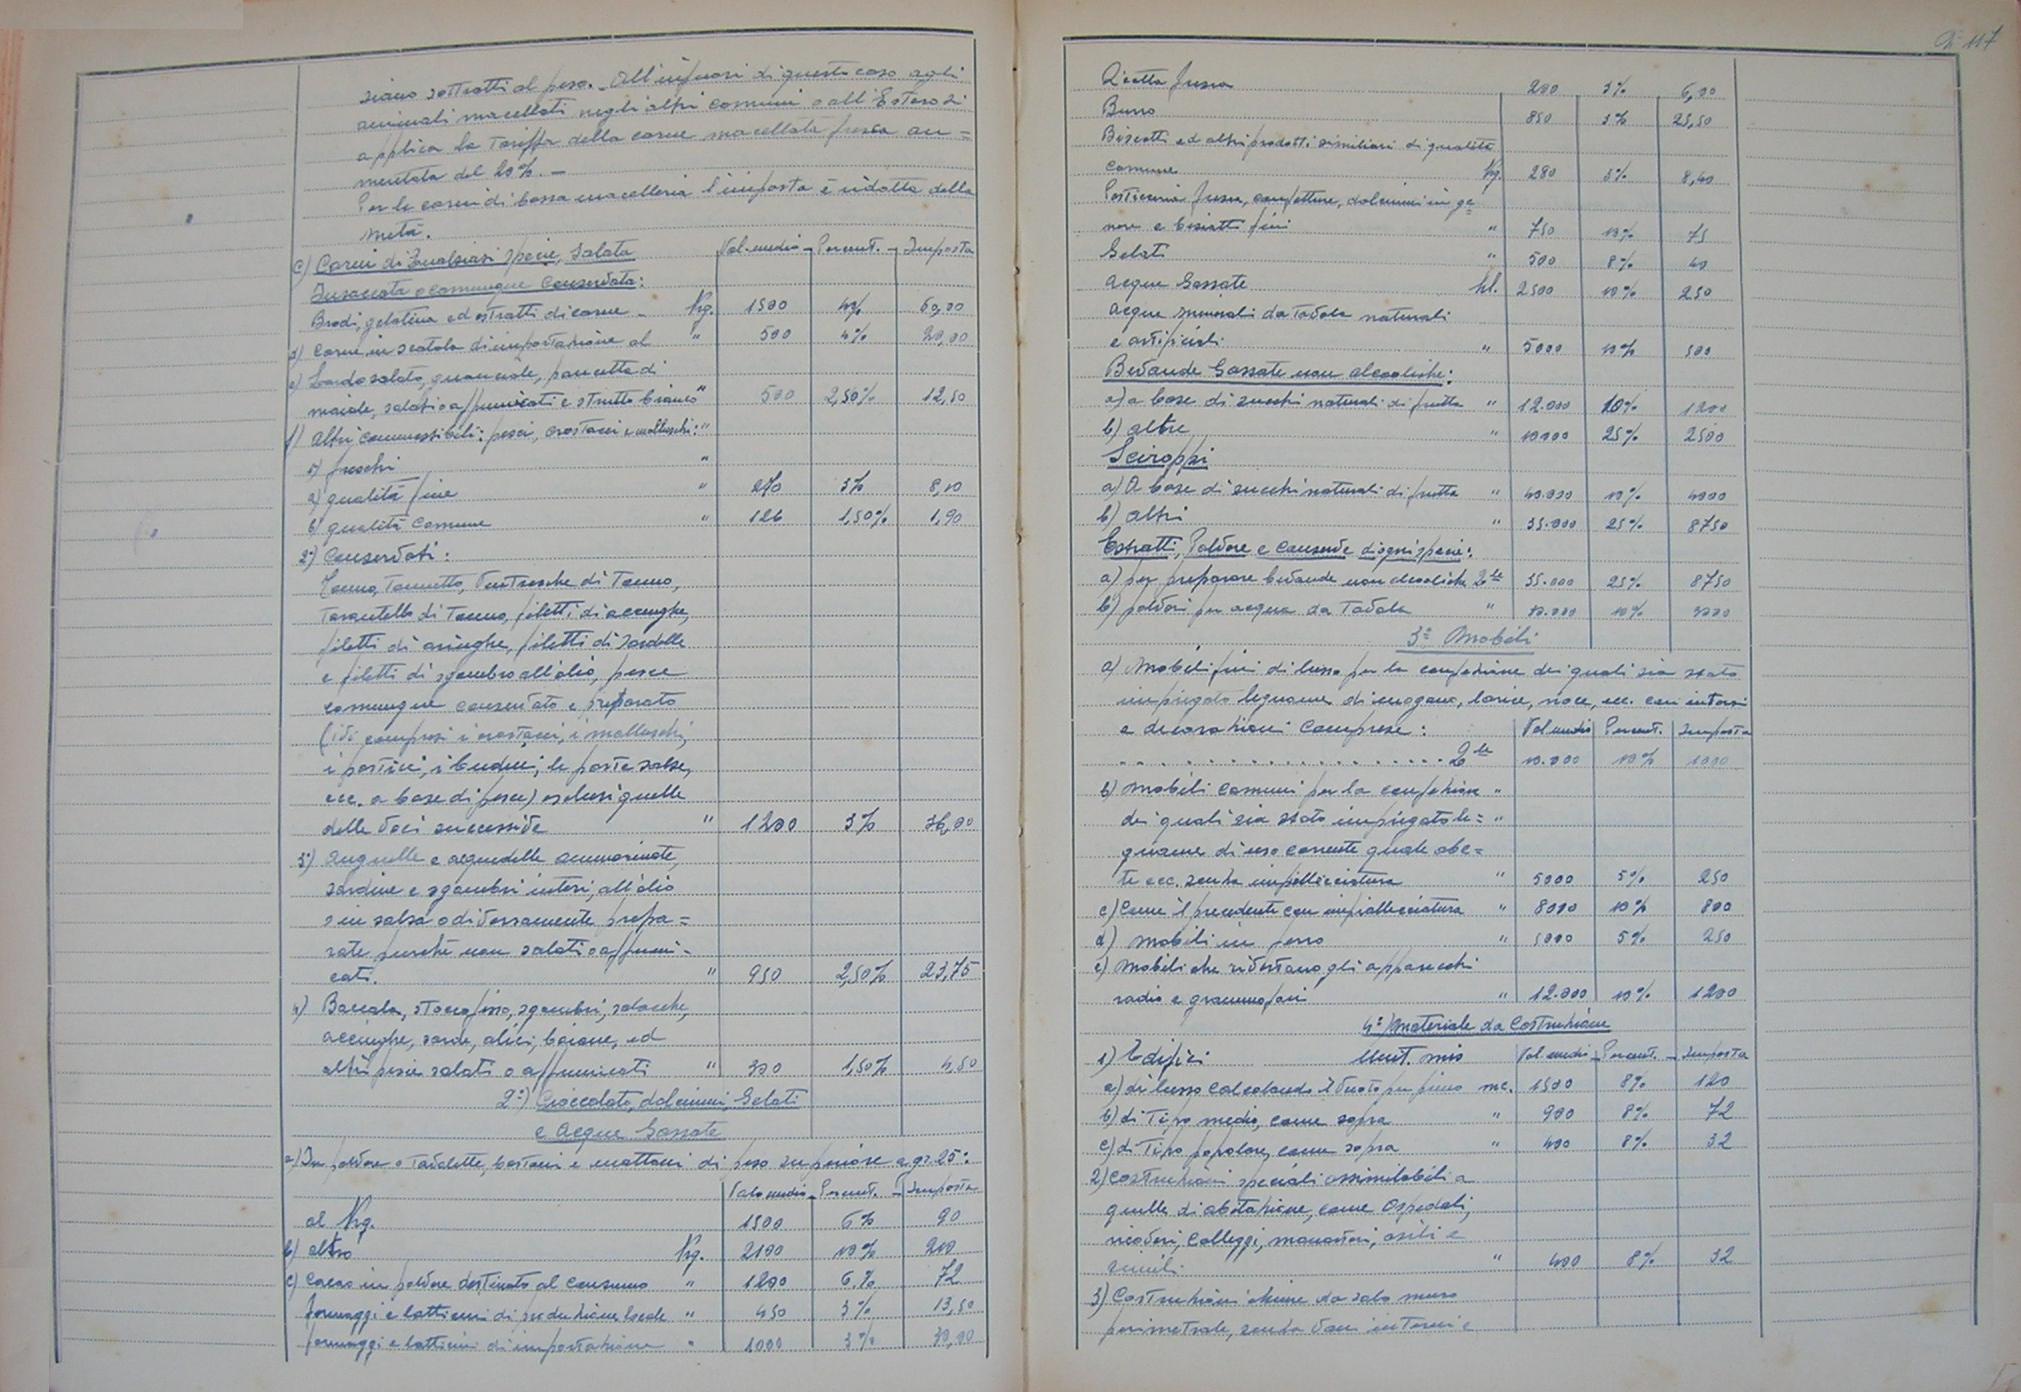 siano sottratti al peso. - All'infuori di questo caso agli
animali macellati negli altri comuni o all'Estero si
applica la Tariffa della carne macellata fresca au=
mentata del 20%. -
Per le carni di bassa macelleria l'imposta è ridotta della
metà.
c) Carni di qualsiasi specie, Salata Val. medio - Percent. - Imposta
Insaccata o comunque Conservata:
Brodi, gelatina ed estratti di carne - Kg. 1500 4% 60,00
d) Carne in scatola di importazione al " 500 4% 20,00
e) Lardo salato, guanciale, pancetta di
maiale, salati o affumicati e strutto bianco " 500 2,50% 12,50
f) Altri commestibili: pesci, crostacei e molluschi: "
1) freschi "
a) qualità fine " 270 3% 8,10
b) qualità comune " 126 1,50% 1,90
2°) Conservati:
Tonno, Tonnetto, Ventresche di Tonno,
Tarantello di Tonno, filetti di acciughe,
filetti di aringhe, filetti di sardelle
e filetti di sgombro all'olio, pesce
comunque conservato e preparato
(ivi compresi i crostacei, i molluschi,
i pasticci, i budini, le paste salse,
ecc. a base di pesce) esclusi quelle
delle voci successive " 1200 3% 36,00
3°) Anguille e acquadelle ammarinate,
sardine e sgombri interi, all'olio
o in salsa o diversamente prepa=
rate purché non salati o affumi-
cati. " 950 2,50% 23,75
4) Baccala, stoccafisso, sgombri, salacche,
acciughe, sarde, alici, boiane, ed
altri pesci salati o affumicati " 300 1,50% 4,50
2°) Cioccolato, dolciumi, Gelati
e Acque Gassate
a) In polvere o Tavolette, bastoni e mattoni di peso superiore a gr. 25:
Valo medio - Percent. - Imposta
al Kg. 1500 6% 90
b) altro Kg. 2100 10% 210
c) Cacao in polvere destinato al consumo " 1200 6% 72
Formaggi e latticini di produzione locale " 450 3% 13,50
formaggi e latticini di importazione " 1000 3% 30,00
117
Ricotta fresca 200 3% 6,00
Burro 850 3% 25,50
Biscotti ed altri prodotti similiari di qualità
comune Kg. 280 3% 8,40
Pasticceria fresca, confetture, dolciumi in ge=
nere e biscotti fini " 750 10% 75
Gelati " 500 8% 40
Acque Gassate hl. 2500 10% 250
Acque minerali da Tavola naturali
e artificiali " 5000 10% 500
Bevande Gassate non alcooliche:
a) a base di succhi naturali di frutta " 12.000 10% 1200
b) altre " 10000 25% 2500
Sciroppi
a) A base di succhi naturali di frutta " 40.000 10% 4000
b) altri " 35.000 25% 8750
Estratti, Polvere e Conserve di ogni specie:
a) per preparare bevande non alcoliche Q.le 35.000 25% 8750
b) polveri per acqua da Tavola " 10%
3° Mobili
a) Mobili fini di lusso per la confezione dei quali sia stato
impiegato legname di mogano, larice, noce, ecc. con intarsi
e decorazioni comprese: Val medio Percent. Imposta
. . . . . . . . . . . . . . . . Q.le 10.000 10% 1000
b) Mobili comuni per la confezione "
dei quali sia stato impiegato le= "
gname di uso corrente quale abe=
te ecc. senza impiallicciatura " 5000 5% 250
c) Come il precedente con impiallicciatura " 8000 10% 800
d) Mobili in ferro " 5000 5% 250
e) Mobili che rivestono gli apparecchi
radio e grammofoni " 12.000 10% 1200
4°) Materiale da Costruzione
1) Edifici Unit. mis Val medio - Percent. - Imposta
a) di lusso calcolando il vuoto per pieno mc. 1500 8% 120
b) di Tipo medio, come sopra " 900 8% 72
c) di Tipo popolare, come sopra " 400 8% 32
2) Costruzioni speciali assimilabili a
quelle di abitazione, come Ospedali,
ricoveri, Colleggi, monasteri, asili e
simili. " 400 8% 32
3) Costruzioni chiuse da solo muro
perimetrale, senza vani interni e